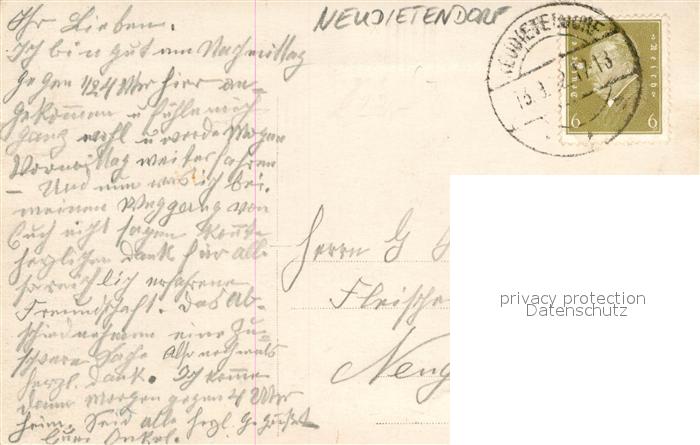 Ihr Lieben.
Ich bin gut am Nachmittag
gegen 1/24 Uhr hier an-
gekommen u fühle mich
ganz wohl u werde Morgen
Vormittag weiterfahren
– Und nun was ich bei
meinem Weggang von
Euch nicht sagen konnte
herzlichen Dank für all
so reichlich erfahrene
Freundschaft. Das Ab-
schiednehmen eine zu
schwere Sache Also nochmals
herzl. Dank. Ich komme
dann morgen gegen 4 Uhr
heim. Seid alle herzl. gegrüßt
Euer Onkel.
NEUDIETENDORF
NEUDIETENDORF
13.
Deutsches Reich
6 6
Herrn G
Fleische
Neug
privacy protection
Datenschutz